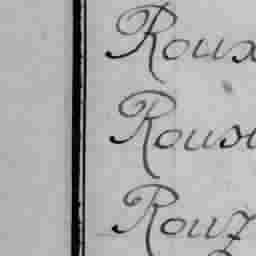 Roux
Roux
Rouz